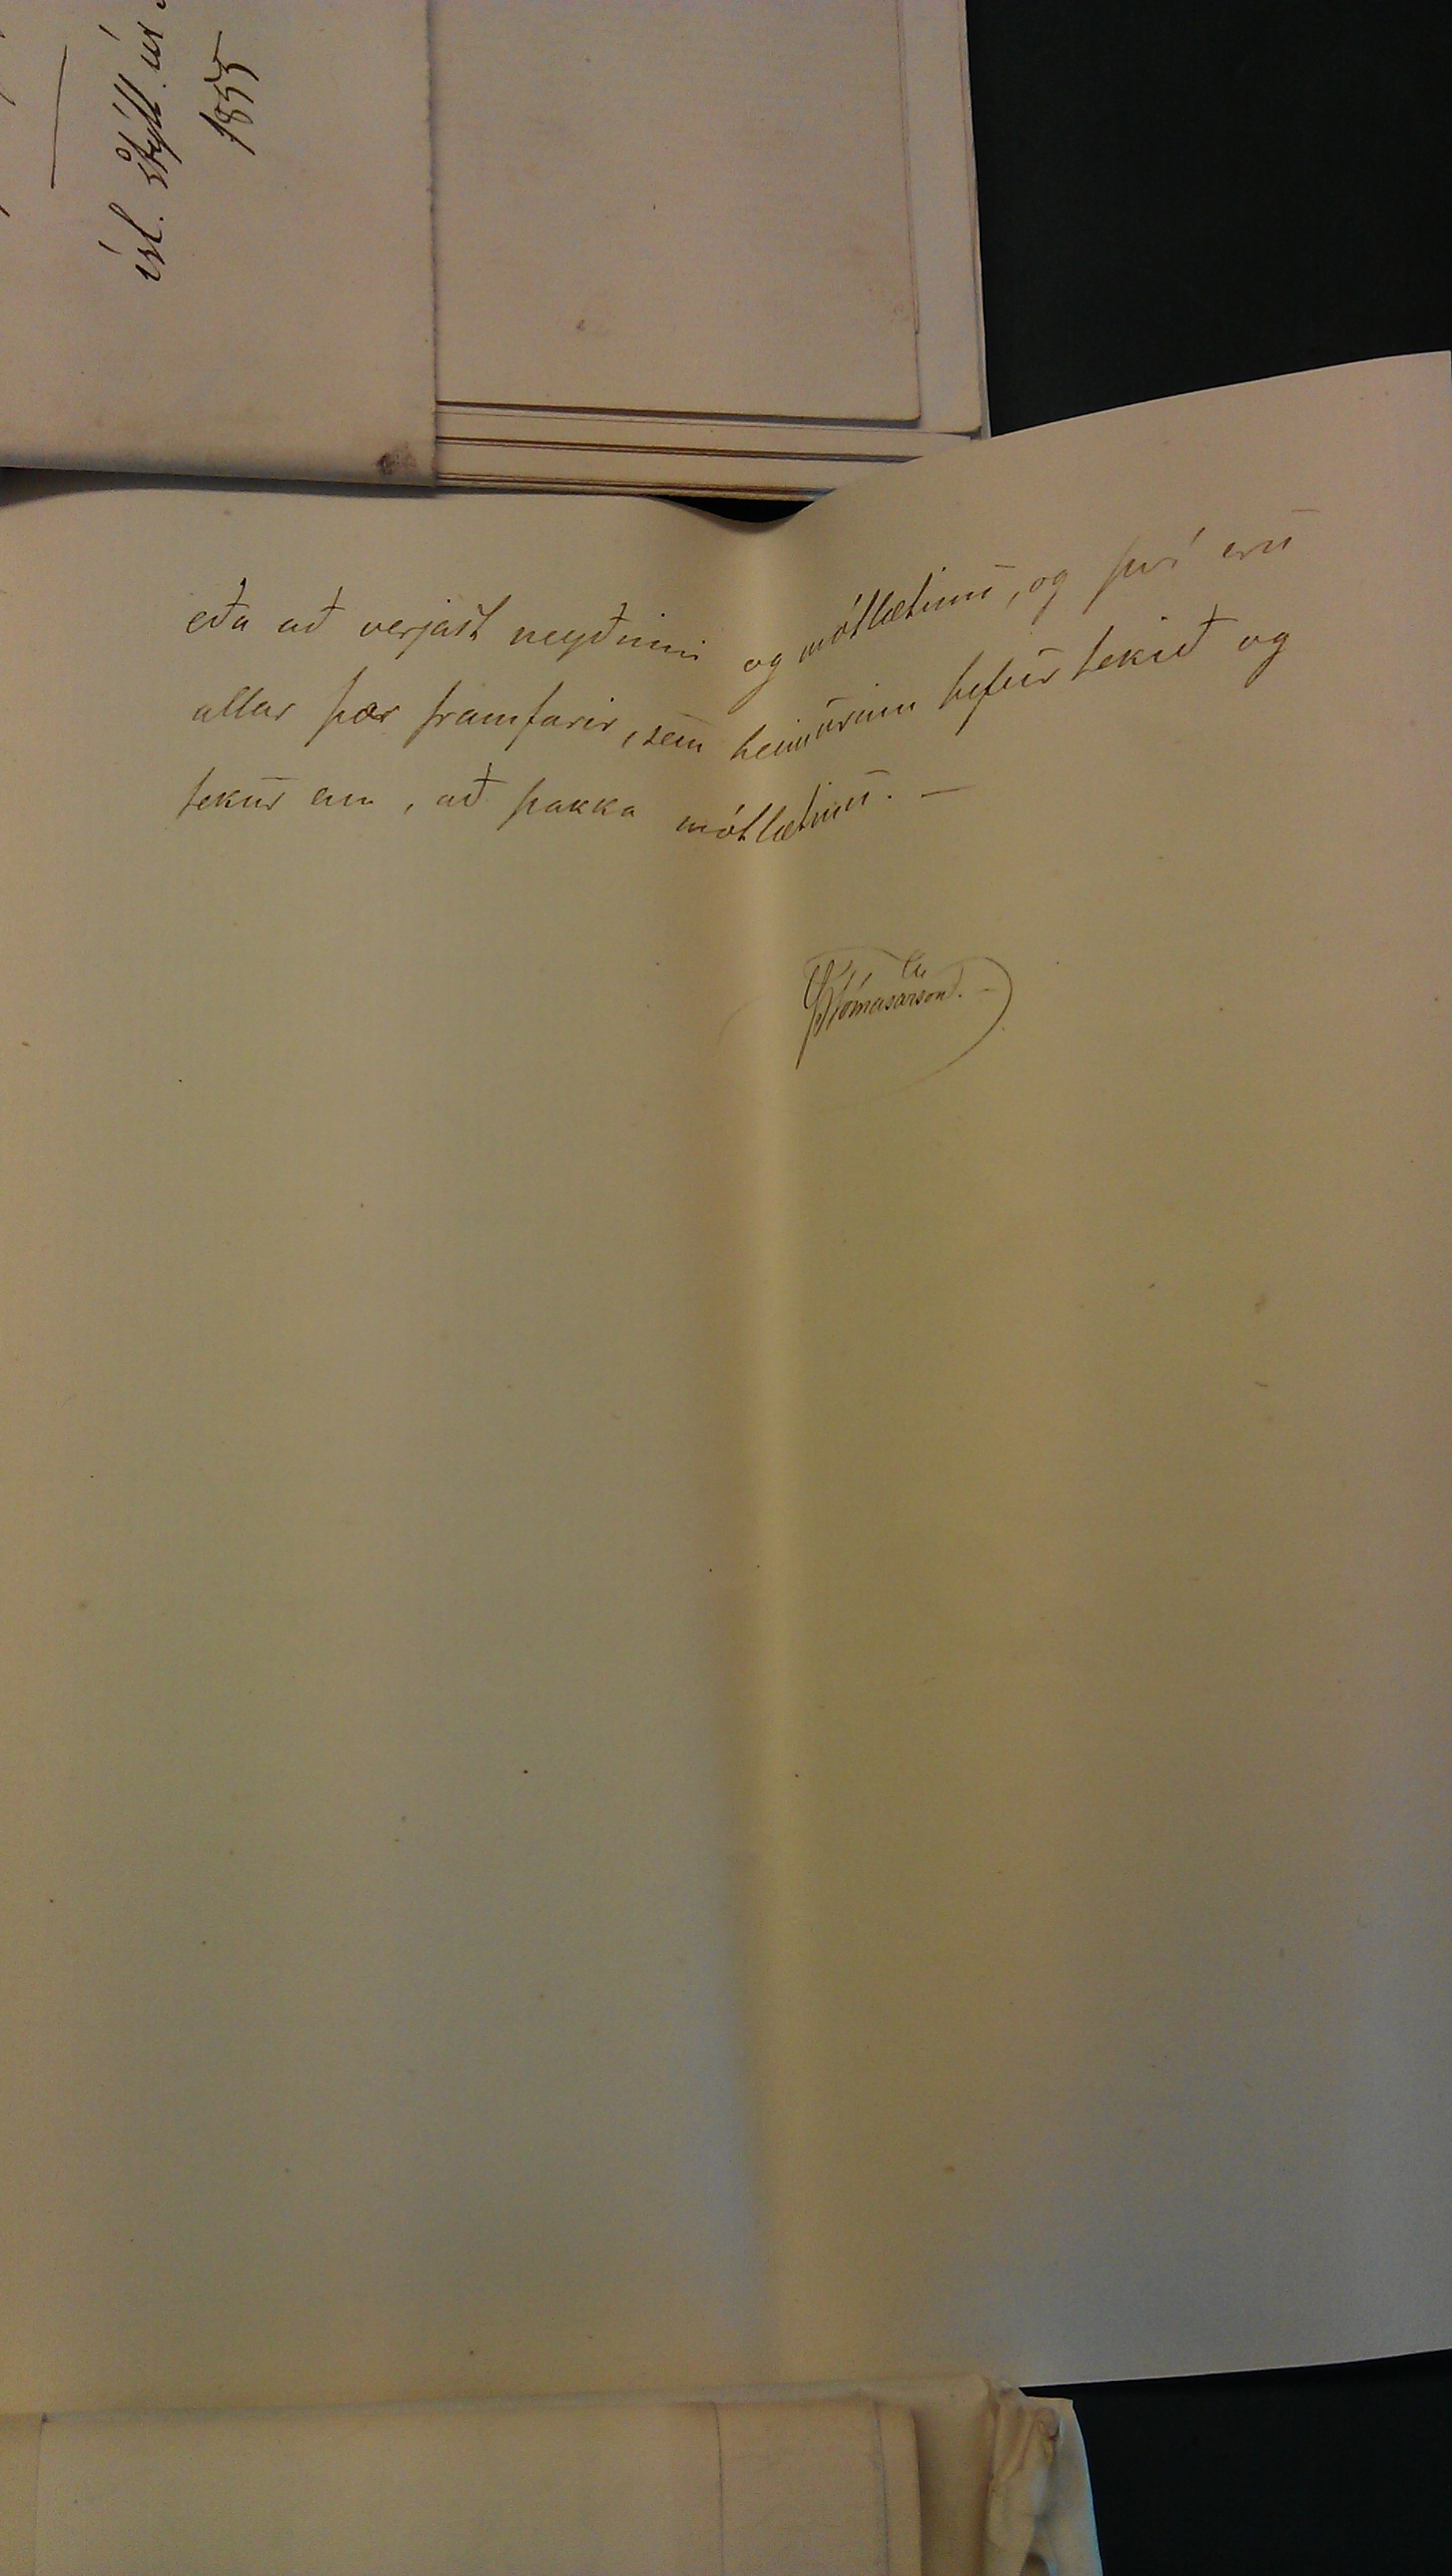 ísl. stýll úr
1855
eða að verjast neyðinni og mótlætinu, og því eru
allar þær framfarir, sem heimurinn hefur tekið og
tekur enn, að þakka mótlætinu. —
Þ Tómasarson. —